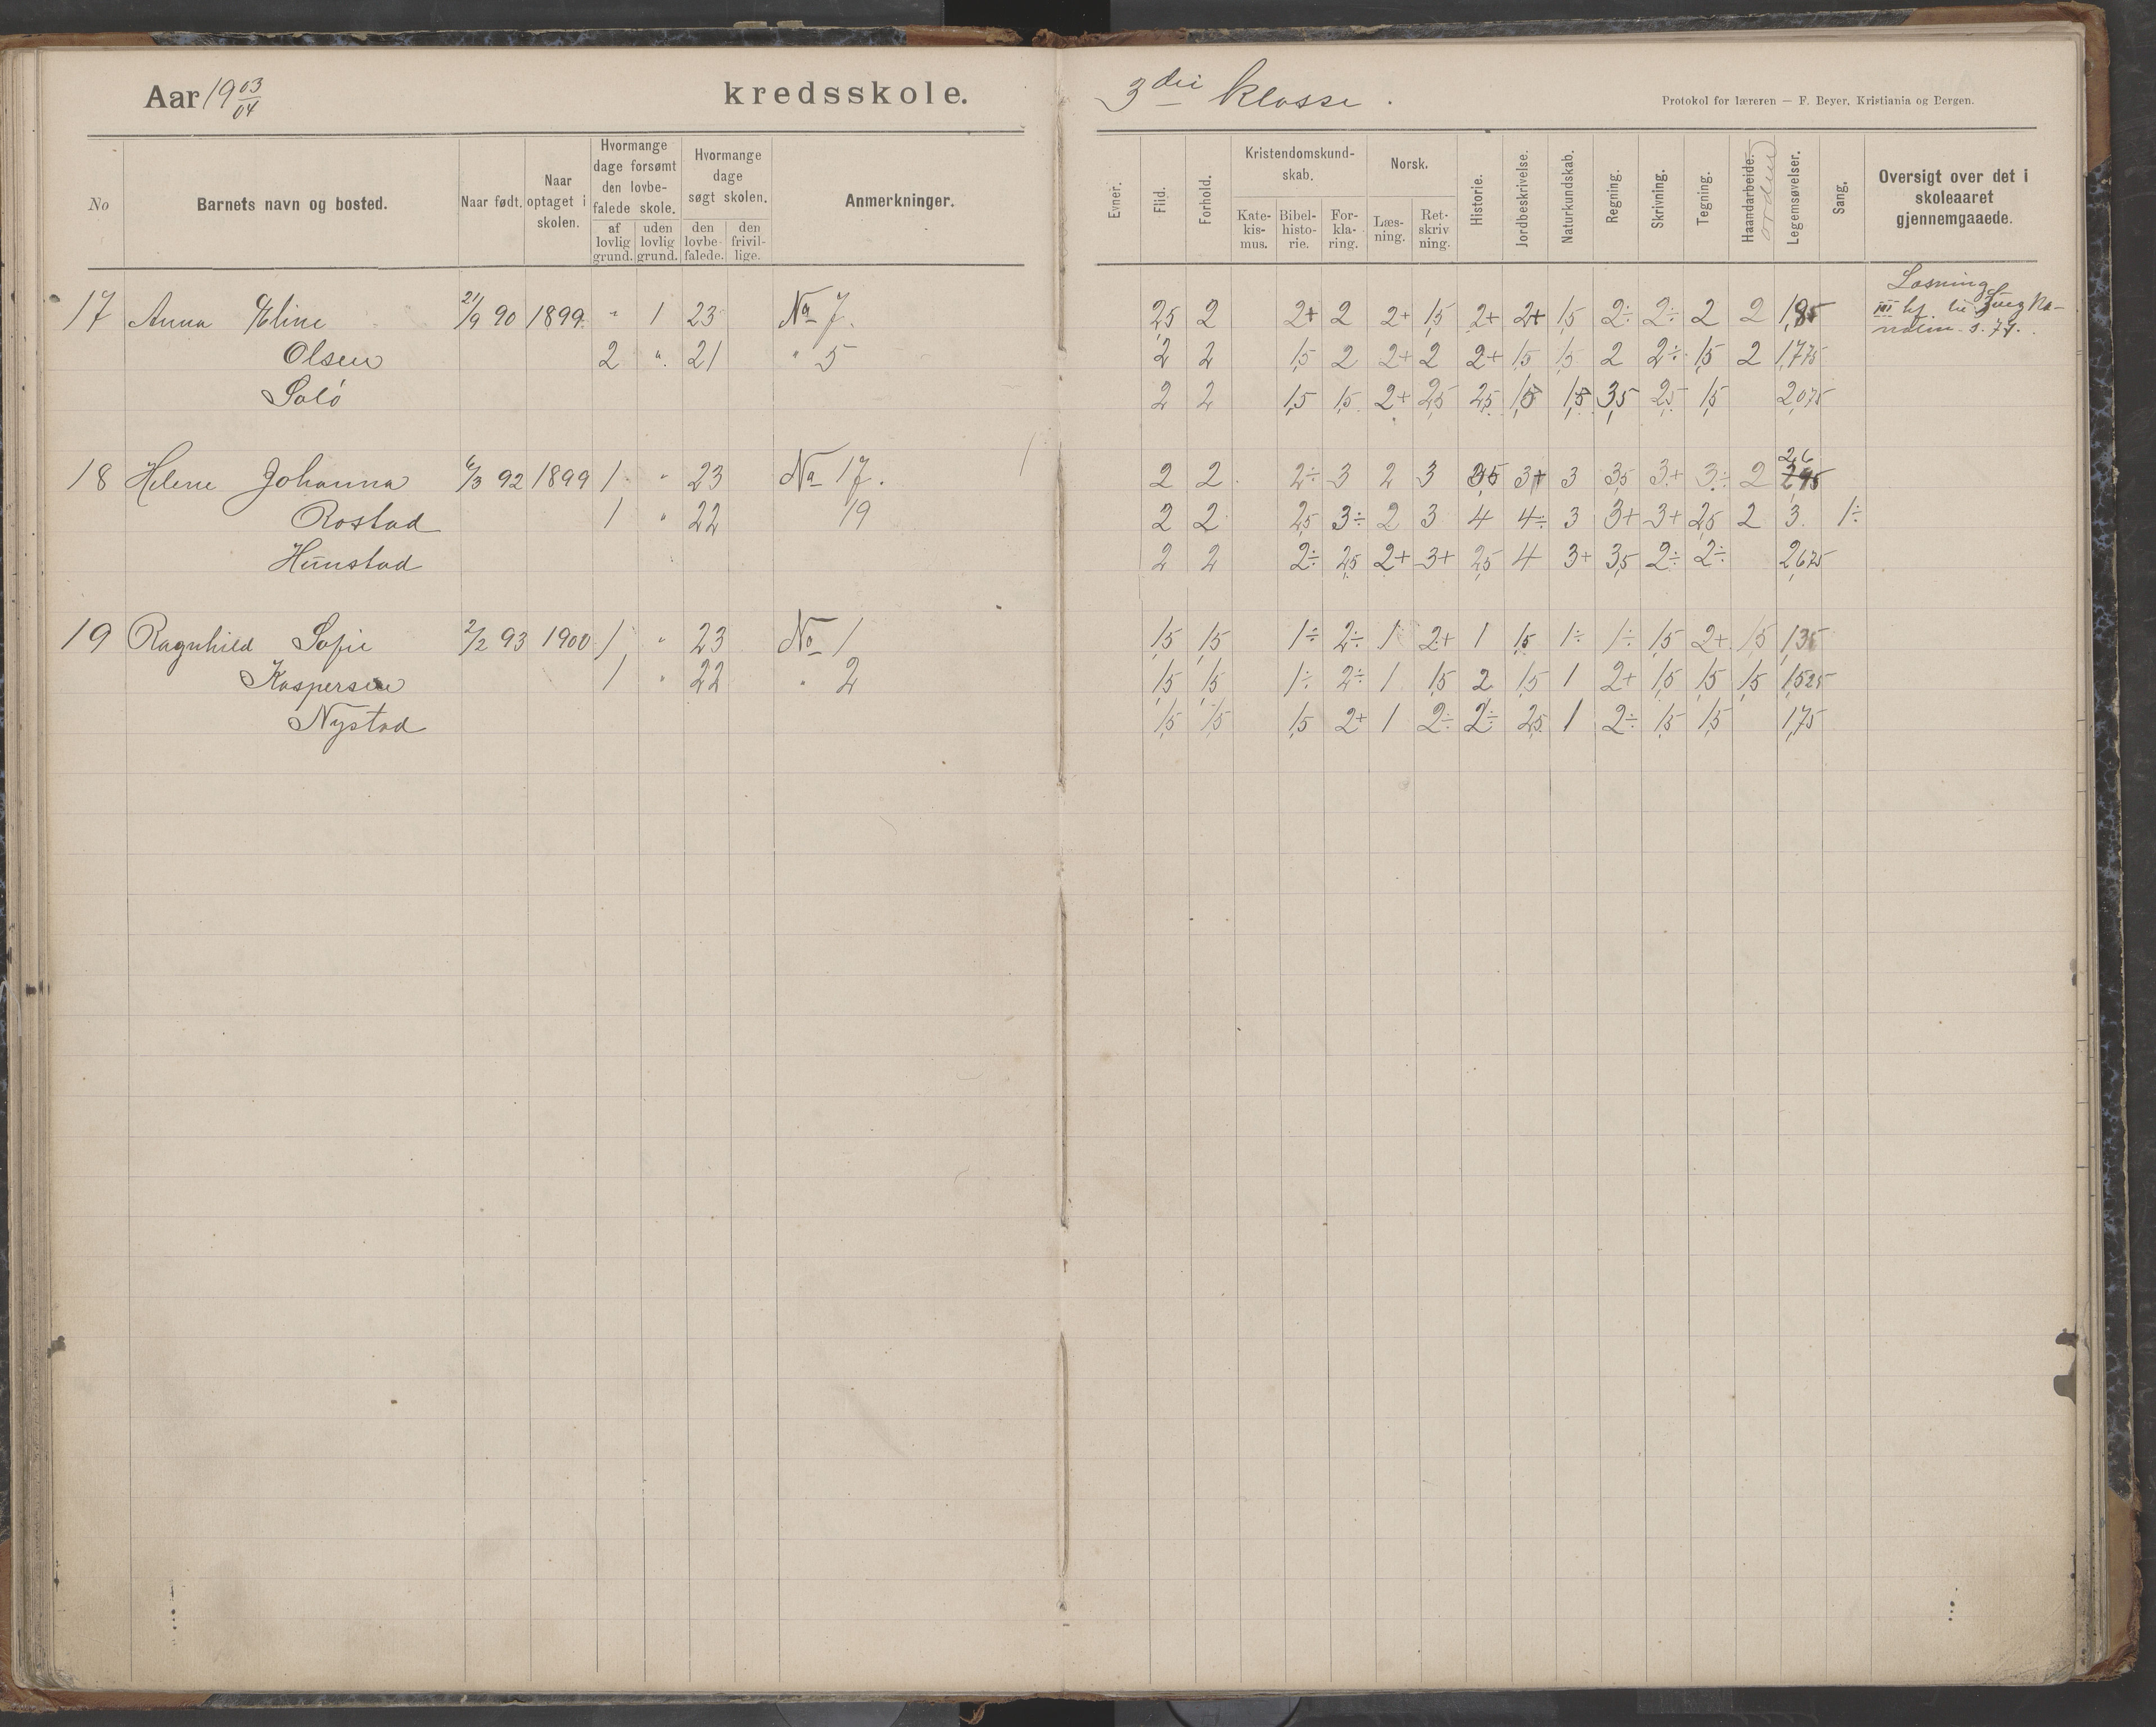 Aar 19 03/04 kredsskole. 3die klasse.
Protokol for læreren — F. Beyer, Kristiania og Bergen.
No
Barnets navn og bosted.
Naar født.
Naar optaget i skolen.
Hvormange dage forsømt den lovbefalede skole.
af lovlig grund.
uden lovlig grund.
Hvormange dage søgt skolen.
den lovbefalede.
den frivillige.
Anmerkninger.
Evner.
Flid.
Forhold.
Kristendomskundskab.
Katekismus.
Bibelhistorie.
Forklaring.
Norsk.
Læsning.
Retskrivning.
Historie.
Jordbeskrivelse.
Naturkundskab.
Regning.
Skrivning.
Tegning.
Haandarbeide.
orden
Legemsøvelser.
Sang.
Oversigt over det i skoleaaret gjennemgaaede.
Læsning
17 Anna Eline 21/9 90 1899 " 1 23 No 7. 2,5 2 2+ 2 2+ 1,5 2+ 2+ 1,5 2÷ 2÷ 2 2 1,85
Olsen 2 " 21 " 5 2 2 1,5 2 2+ 2 2+ 1,5 1,5 2 2÷ 1,5 2 1,775
Solø 2 2 1,5 1,5 2+ 2,5 2,5 1,5 1,5 3,5 2,5 1,5 2,075
18 Helene Johanna 6/3 92 1899 1 " 23 No 17. 2 2 2÷ 3 2 3 3,5 3+ 3 3,5 3+ 3÷ 2 2,6
Rostad 1 " 22 19 2 2 2,5 3÷ 2 3 4 4÷ 3 3+ 3+ 2,5 2 3. 1÷
Hunstad 2 2 2÷ 2,5 2+ 3+ 2,5 4 3+ 3,5 2÷ 2÷ 2,675
19 Ragnhild Sofie 2/2 93 1900 1 " 23 No 1 1,5 1,5 1÷ 2÷ 1 2+ 1 1,5 1÷ 1÷ 1,5 2+ 1,5 1,35
Kaspersen 1 " 22 " 2 1,5 1,5 1÷ 2÷ 1 1,5 2 1,5 1 2+ 1,5 1,5 1,5 1,525
Nystad 1,5 1,5 1,5 2+ 1 2÷ 2÷ 2,5 1 2÷ 1,5 1,5 1,75